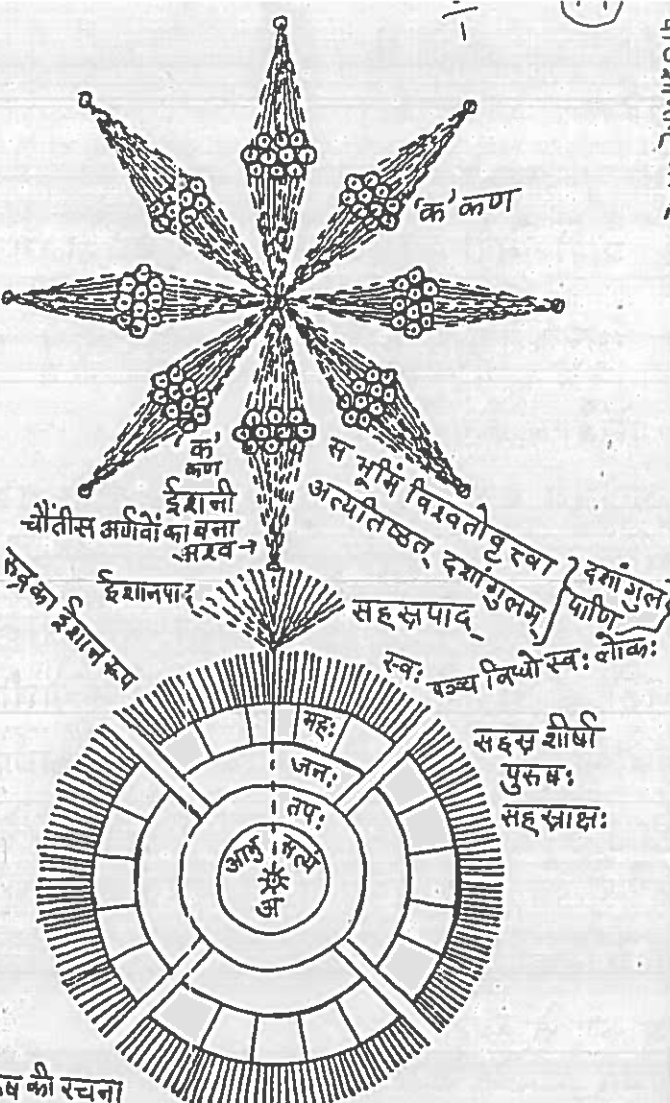 'क' कण
'क'
कण
ईशनी
चौंतीस अर्णवों का बना
अश्व→
स भूमिं विश्वतोवृत्त्वा
अत्यतिष्ठत् दशांगुलम्
दशांगुल
पाणि
ईशानपाद्
सहस्रपाद्
रुद्र का ईशान रूप
स्वः पञ्च विधो स्वः लोकः
सहस्र शीर्षा
पुरुषः
सहस्राक्षः
महः
जनः
तपः
आभु सत्यं
अ
की रचना